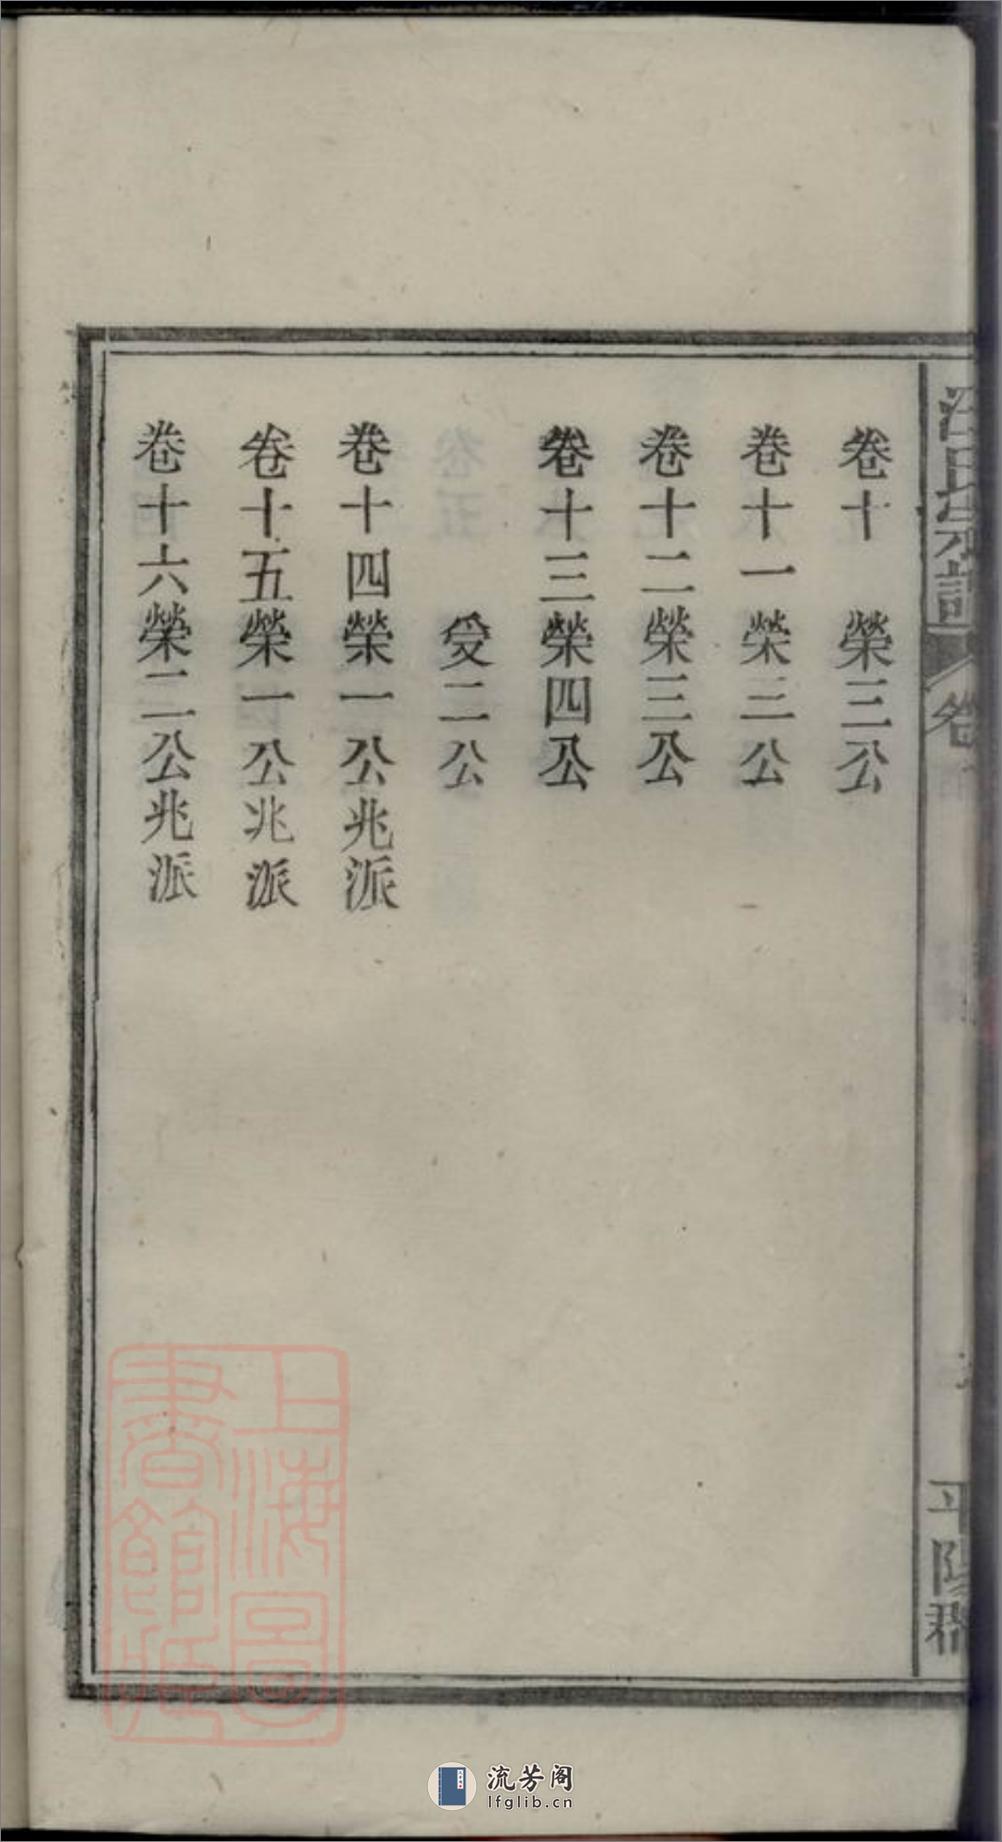 汪氏宗譜
卷
平陽郡
卷十　榮三公
卷十一榮三公
卷十二榮三公
卷十三榮四公
受二公
卷十四榮一公兆派
卷十五榮一公兆派
卷十六榮二公兆派
上海圖
書館藏
流芳阁
lfglib.cn